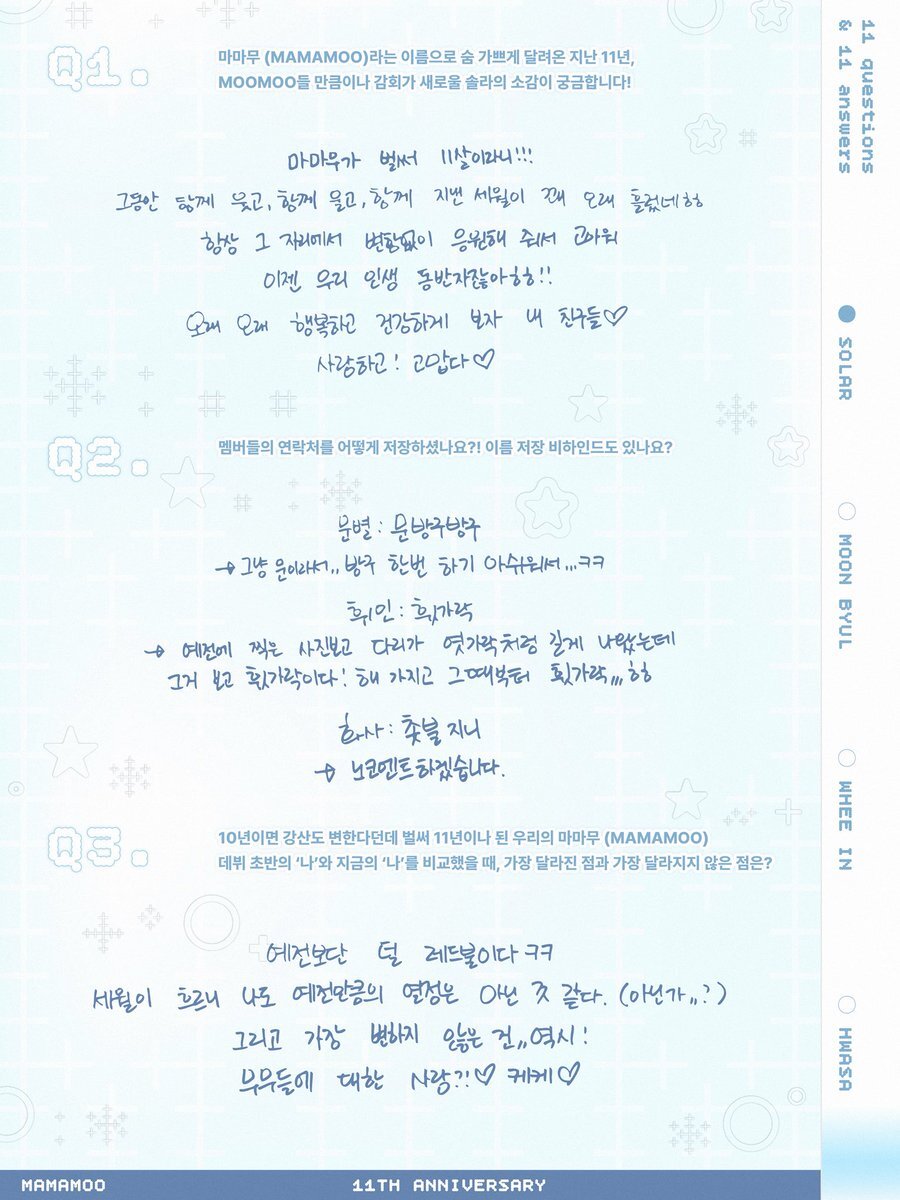 Q1.
마마무 (MAMAMOO)라는 이름으로 숨 가쁘게 달려온 지난 11년,
MOOMOO들 만큼이나 감회가 새로울 솔라의 소감이 궁금합니다!
마마무가 벌써 11살이라니!!!
그동안 함께 웃고, 함께 울고, 함께 지낸 세월이 꽤 오래 흘렀네ㅎㅎ
항상 그 자리에서 변함없이 응원해 줘서 고마워
이젠 우리 인생 동반자잖아ㅎㅎ!!
오래 오래 행복하고 건강하게 보자 내 친구들♡
사랑하고! 고맙다♡
Q2.
멤버들의 연락처를 어떻게 저장하셨나요?! 이름 저장 비하인드도 있나요?
문별 : 문방구방구
→ 그냥 문이라서,, 방구 한번 하기 아쉬워서...ㅋㅋ
휘인 : 휫가락
→ 예전에 찍은 사진보고 다리가 엿가락처럼 길게 나왔는데
그거 보고 휫가락이다! 해 가지고 그때부터 휫가락,,, ㅎㅎ
화사 : 촛불지니
→ 노코멘트하겠습니다.
Q3.
10년이면 강산도 변한다던데 벌써 11년이나 된 우리의 마마무 (MAMAMOO)
데뷔 초반의 ‘나’와 지금의 ‘나’를 비교했을 때, 가장 달라진 점과 가장 달라지지 않은 점은?
예전보단 덜 레드불이다 ㅋㅋ
세월이 흐르니 나도 예전만큼의 열정은 아닌 것 같다. (아닌가,,?)
그리고 가장 변하지 않는 건,, 역시!
무무들에 대한 사랑?!♡ 케케♡
11 questions
& 11 answers
SOLAR
MOON BYUL
WHEE IN
HWASA
MAMAMOO
11TH ANNIVERSARY